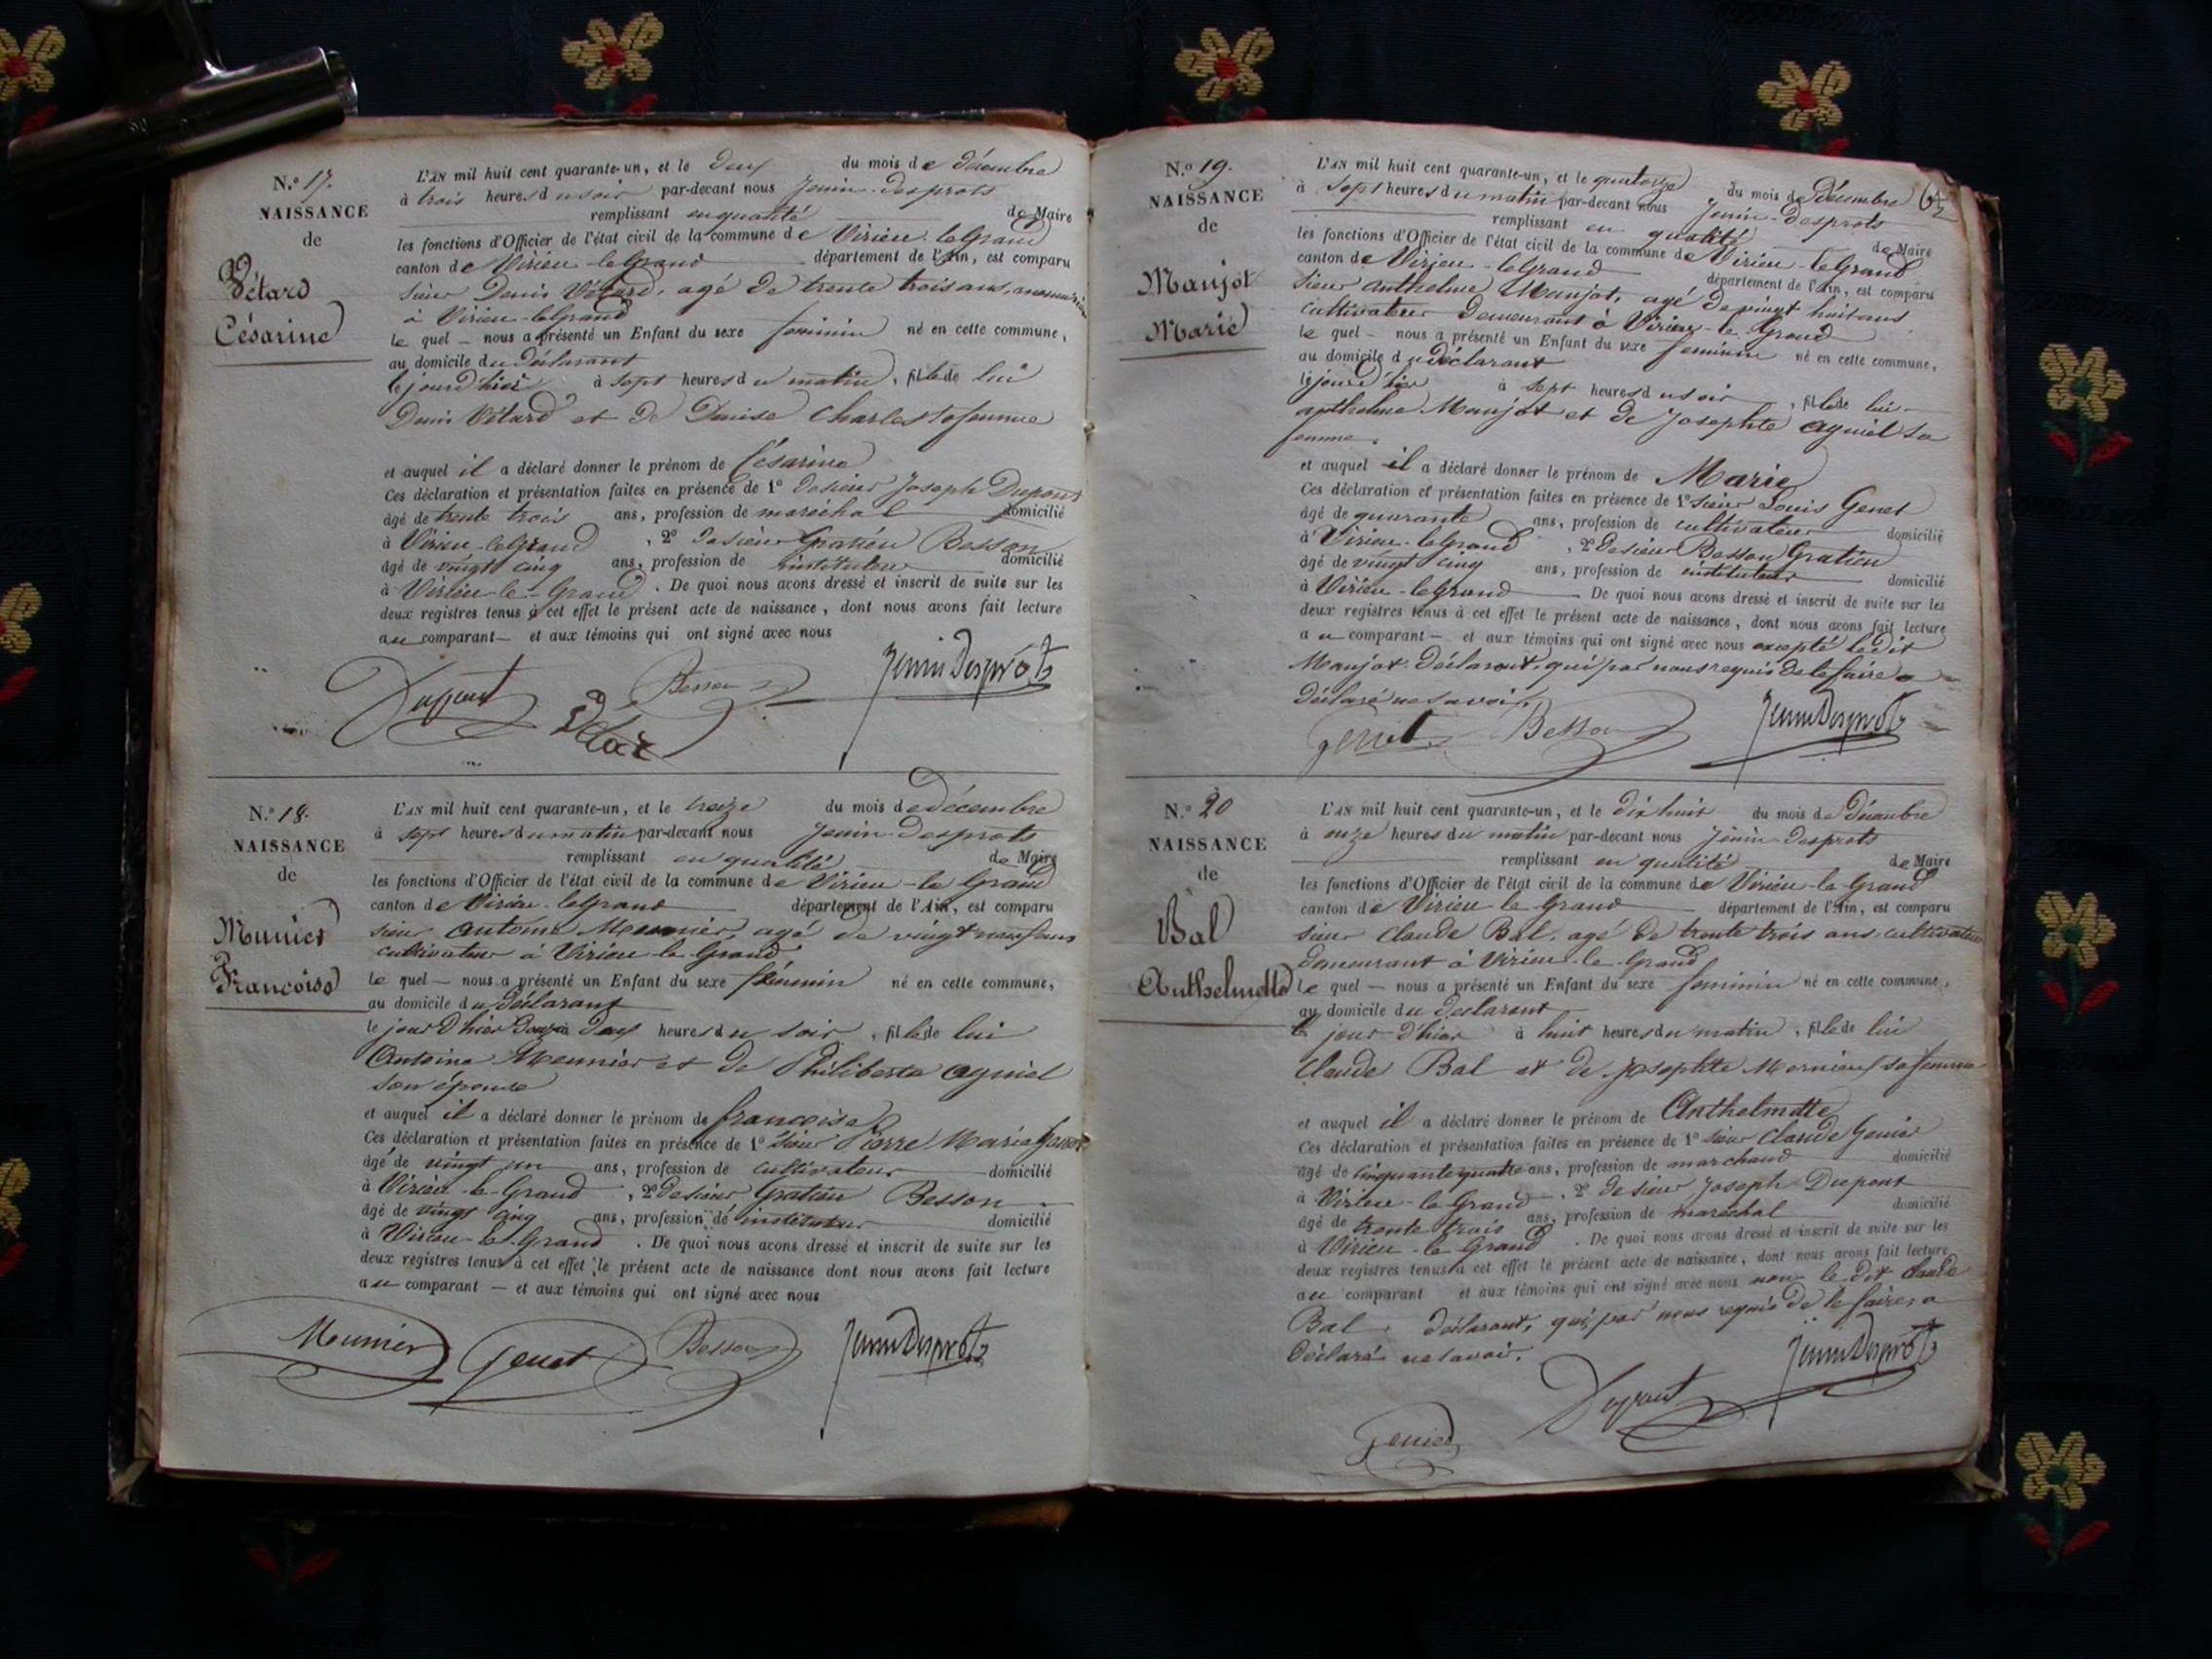 N.º 17.
NAISSANCE
de
Vétard
Césarine
L'AN mil huit cent quarante-un, et le deux du mois de décembre
à trois heures du soir par-devant nous Jenin-Desprots
remplissant en qualité de Maire
les fonctions d'Officier de l'état civil de la commune de Virieu-le Grand
canton de Virieu-le Grand département de l'Ain, est comparu
sieur Denis Vétard, agé de trente trois ans,
à Virieu-le Grand
le quel — nous a présenté un Enfant du sexe feminin né en cette commune,
au domicile du déclarant
le jour d'hier à sept heures du matin, fille de lui
Denis Vétard et de Denise Charles sa femme
et auquel il a déclaré donner le prénom de Césarine
Ces déclaration et présentation faites en présence de 1º de sieur Joseph Dupont
âgé de trente trois ans, profession de maréchal domicilié
à Virieu-le Grand, 2º de sieur Gratien Besson
âgé de vingt cinq ans, profession de instituteur domicilié
à Virieu-le-Grand. De quoi nous avons dressé et inscrit de suite sur les
deux registres tenus à cet effet le présent acte de naissance, dont nous avons fait lecture
au comparant — et aux témoins qui ont signé avec nous
Dupont Vétard Besson Jenin Desprots
N.º 18.
NAISSANCE
de
Munier
Francoise
L'AN mil huit cent quarante-un, et le treize du mois de décembre
à sept heures du matin par-devant nous Jenin-Desprots
remplissant en qualité de Maire
les fonctions d'Officier de l'état civil de la commune de Virieu-le Grand
canton de Virieu-le Grand département de l'Ain, est comparu
sieur Antoine Meunier, agé de vingt neuf ans
cultivateur à Virieu-le-Grand
le quel — nous a présenté un Enfant du sexe féminin né en cette commune,
au domicile du déclarant
le jour d'hier douze à deux heures du soir, fille de lui
Antoine Meunier et de Philiberte Agniel
son épouse
et auquel il a déclaré donner le prénom de francoise
Ces déclaration et présentation faites en présence de 1º sieur Pierre Marie Genet
âgé de vingt un ans, profession de cultivateur domicilié
à Virieu-le-Grand, 2º de sieur Gratien Besson
âgé de vingt cinq ans, profession de instituteur domicilié
à Virieu-le-Grand. De quoi nous avons dressé et inscrit de suite sur les
deux registres tenus à cet effet le présent acte de naissance dont nous avons fait lecture
au comparant — et aux témoins qui ont signé avec nous
Meunier Genet Besson Jenin Desprots
N.º 19.
NAISSANCE
de
Maujot
Marie
L'AN mil huit cent quarante-un, et le quatorze du mois de décembre
à sept heures du matin par-devant nous Jenin-Desprots
remplissant en qualité de Maire
les fonctions d'Officier de l'état civil de la commune de Virieu-le Grand
canton de Virieu-le Grand département de l'Ain, est comparu
sieur anthelme Maujot, agé de vingt huit ans
cultivateur demeurant à Virieu-le-Grand
le quel — nous a présenté un Enfant du sexe feminin né en cette commune,
au domicile du déclarant
le jour d'hier à sept heures du soir, fille de lui
anthelme Maujot et de Josephte Agniel sa
femme.
et auquel il a déclaré donner le prénom de Marie
Ces déclaration et présentation faites en présence de 1º sieur Louis Genet
âgé de quarante ans, profession de cultivateur domicilié
à Virieu-le Grand, 2º de sieur Besson Gratien
âgé de vingt cinq ans, profession de instituteur domicilié
à Virieu-le Grand De quoi nous avons dressé et inscrit de suite sur les
deux registres tenus à cet effet le présent acte de naissance, dont nous avons fait lecture
au comparant — et aux témoins qui ont signé avec nous excepté le dit
Maujot déclarant, qui par nous requis de le faire a
déclaré ne savoir.
Genet Besson Jenin Desprots
N.º 20
NAISSANCE
de
Bal
Anthelmette
L'AN mil huit cent quarante-un, et le dix huit du mois de décembre
à onze heures du matin par-devant nous Jenin-Desprots
remplissant en qualité de Maire
les fonctions d'Officier de l'état civil de la commune de Virieu-le Grand
canton de Virieu le Grand département de l'Ain, est comparu
sieur Claude Bal, agé de trente trois ans, cultivateur
demeurant à Virieu-le-Grand
le quel — nous a présenté un Enfant du sexe feminin né en cette commune,
au domicile du déclarant
le jour d'hier à huit heures du matin, fille de lui
Claude Bal et de Josephte Mornieux sa femme
et auquel il a déclaré donner le prénom de Anthelmette
Ces déclaration et présentation faites en présence de 1º sieur Claude Genier
âgé de cinquante quatre ans, profession de marchand domicilié
à Virieu-le Grand, 2º de sieur Joseph Dupont
âgé de trente trois ans, profession de maréchal domicilié
à Virieu-le Grand. De quoi nous avons dressé et inscrit de suite sur les
deux registres tenus à cet effet le présent acte de naissance, dont nous avons fait lecture
au comparant et aux témoins qui ont signé avec nous non le dit Claude
Bal, déclarant, qui par nous requis de le faire, a
déclaré ne savoir.
Genier Dupont Jenin Desprots